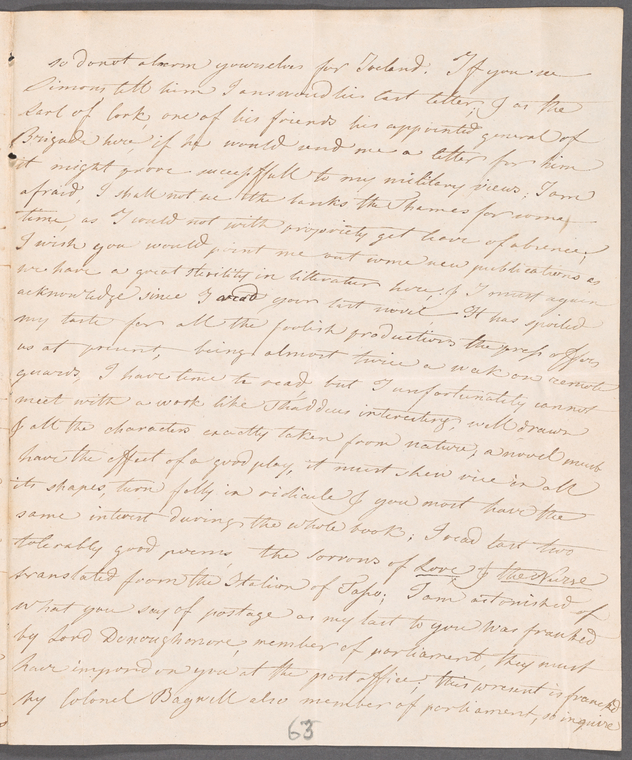 so donot alarm yourselves for Ireland. If you see
Dimons, tell him I answered his last letter, & as the
Earl of Cork, one of his friends his appointed general of
Brigade here if he would send me a letter for him
it might prove succesfull to my military views; I am
afraid, I shall not see the banks the Thames for some
time, as I could not with propriety get leave of absence;
I wish you would point me out some new publications as
we have a great sterility in litterature here, & I must again
acknowledge since I read your last novel It has spoiled
my taste for all the foolish productions the press offers
us at present, being almost twice a week on remote
guards, I have time to read, but I unfortunately cannot
meet with a work like Thaddeus interesting, well drawn
& all the characters exactly taken from nature, a novel must
have the effect of a good play, it must shew vice in all
its shapes, turn folly in ridicule & you most have the
same interest during the whole book; I read last two
tolerably good poems, the sorrows of Love, & the Nurse
translated from the Italian of Tapo; I am astonished of
what you say of postage as my last to you was franked
by Lord Donoughmore, member of parliament, they must
have imposed on you at the post office; this present is franked
by Colonel Bagwell also member of parliament, so inquire
63